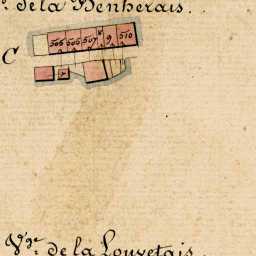 de la Benherais.
C
565 566 567 9 510
Vge. de la Louvetais.